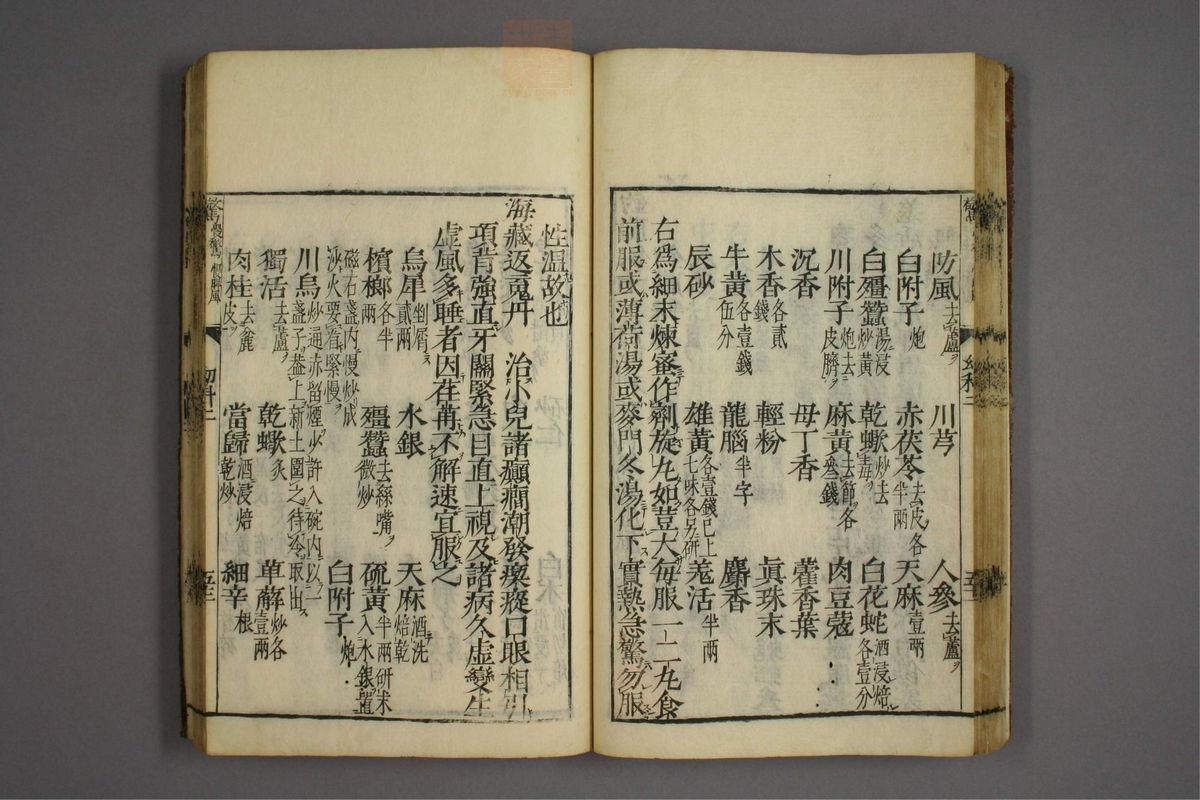 防風去蘆ヲ 川芎 人參去蘆ヲ
白附子炮 赤茯苓去皮ヲ各半兩 天麻壹兩
白殭蠶湯浸炒黃 乾蠍炒去毒ヲ 白花蛇酒浸焙各壹分
川附子炮去皮臍ヲ 麻黃去節ヲ各叄錢 肉豆蔻
沉香 母丁香 藿香葉
木香各貳錢 輕粉 眞珠末
牛黃各壹錢伍分 龍腦半字 麝香
辰砂 雄黃各壹錢已上七味各另研 羗活半兩
右爲細末煉蜜作劑旋丸如荳大每服一二丸食
前服或薄荷湯或麥門冬湯化下實熱急驚勿服
性温故也
海藏返䰟丹 治小兒諸癲癎潮發瘈瘲口眼相引
項背強直牙關緊急目直上視及諸病久虛變生
虛風多睡者因荏苒不解速宜服之
烏犀剉屑貳兩 水銀 天麻酒洗焙乾
檳榔各半兩 殭蠶去絲嘴ヲ微炒 硫黃半兩研末入水銀置
磁石盞内慢炒成沙火要看緊慢ヲ 白附子炮
川烏炒通赤留煙少許入碗内以一盞子ヲ葢上新土圍之待冷取出
獨活去蘆ヲ 乾蠍炙 萆薢炒各壹兩
肉桂去麄皮ヲ 當歸酒浸焙乾炒 細辛根
幼科二
五三